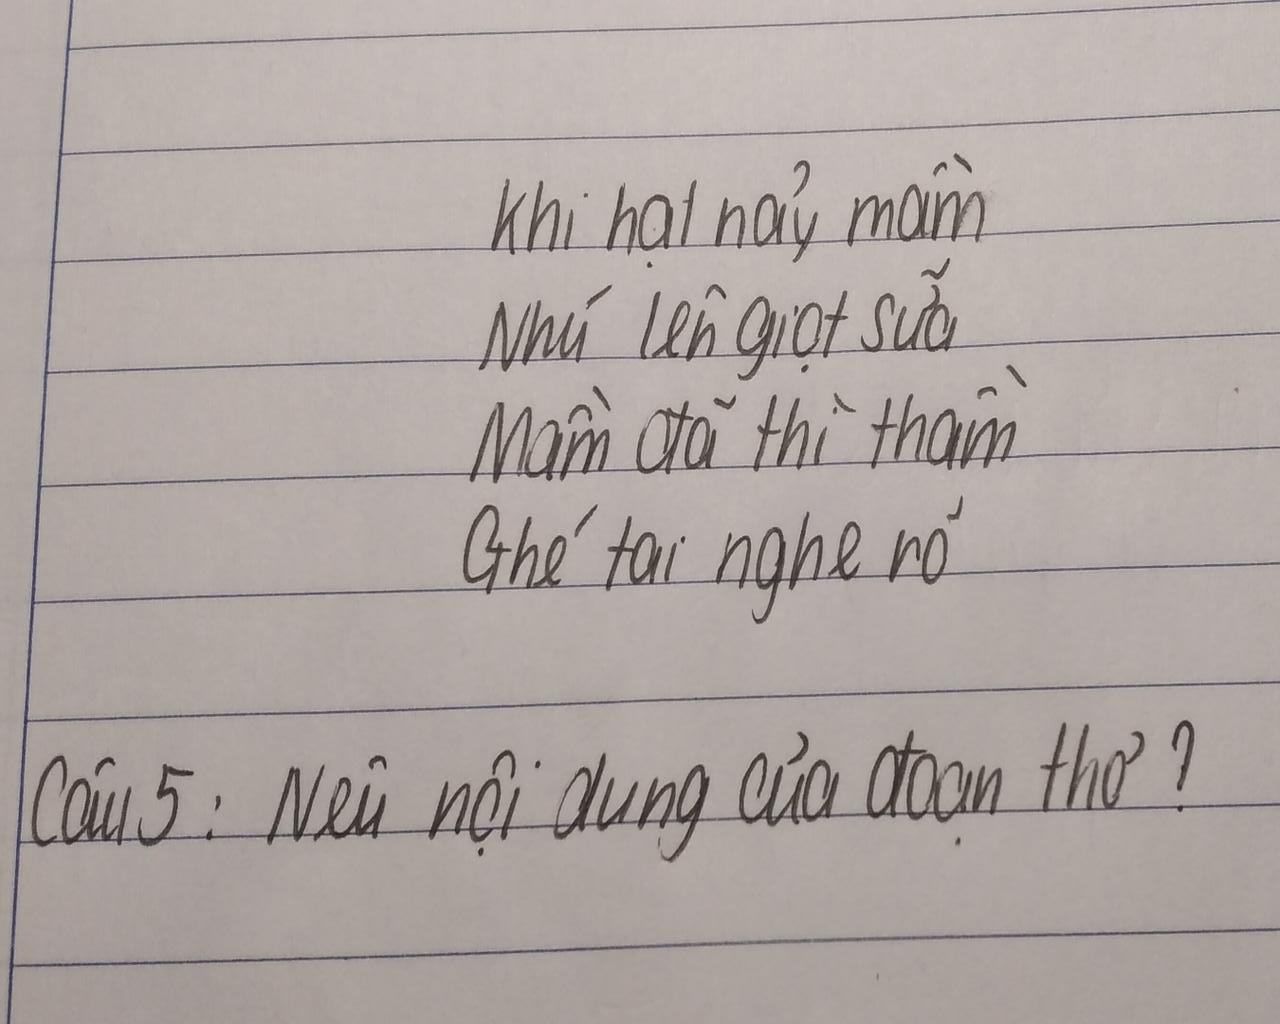 Khi hạt nảy mầm
Nhú lên giọt sữa
Mầm đã thì thầm
Ghé tai nghe ró
Câu 5: Nêu nội dung của đoạn thơ?